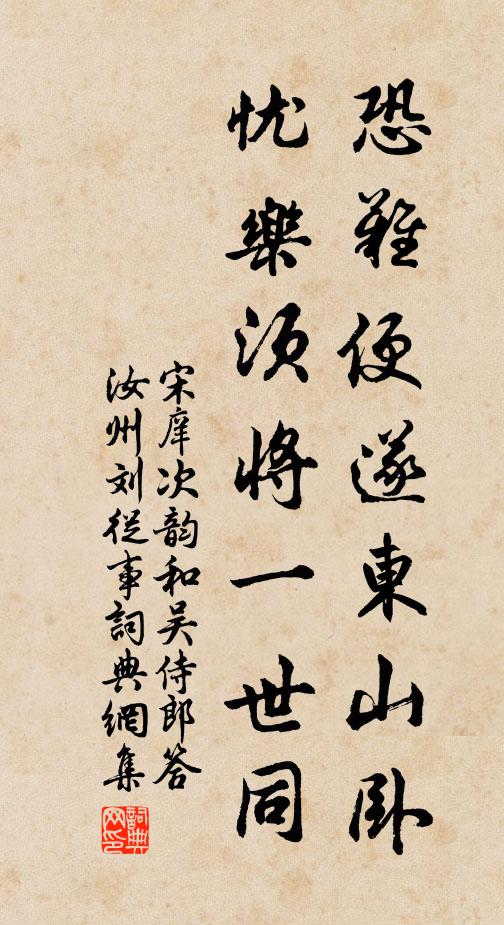 恐難便遂東山卧
忧樂须將一世同
宋庠次韵和吴侍郎答
汝州刘從事詞典網集
詞典网印